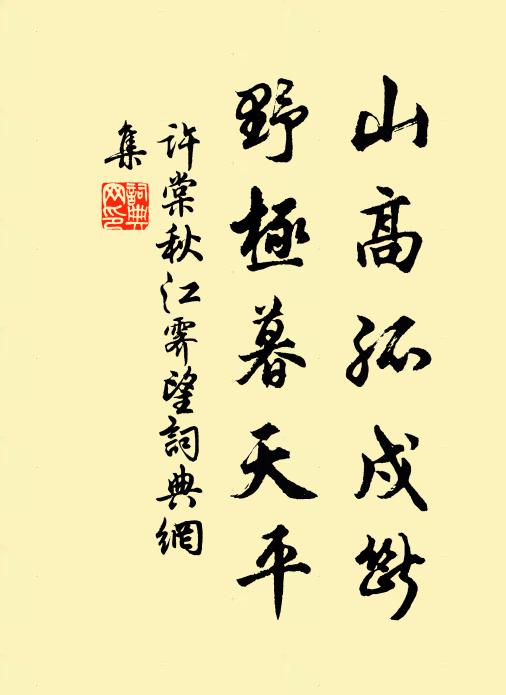 山高孤戍斷
野極暮天平
許棠秋江霽望詞典網
集
詞典
网印